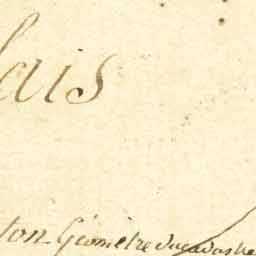 lais
ton Géomètre du Cadastre